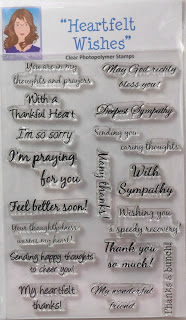 "Heartfelt
Wishes"
Clear Photopolymer Stamps
You are in my
thoughts and prayers
With a
Thankful Heart
I'm so sorry
I'm praying
for you
Feel better soon!
Your thoughtfulness
warms my heart!
Sending happy thoughts
to cheer you!
My heartfelt
thanks!
May God richly
bless you!
Deepest Sympathy
Sending you
caring thoughts
Many thanks!
With
Sympathy
Wishing you
a speedy recovery!
Thank you
so much!
My wonderful
friend
Thanks a bunch!